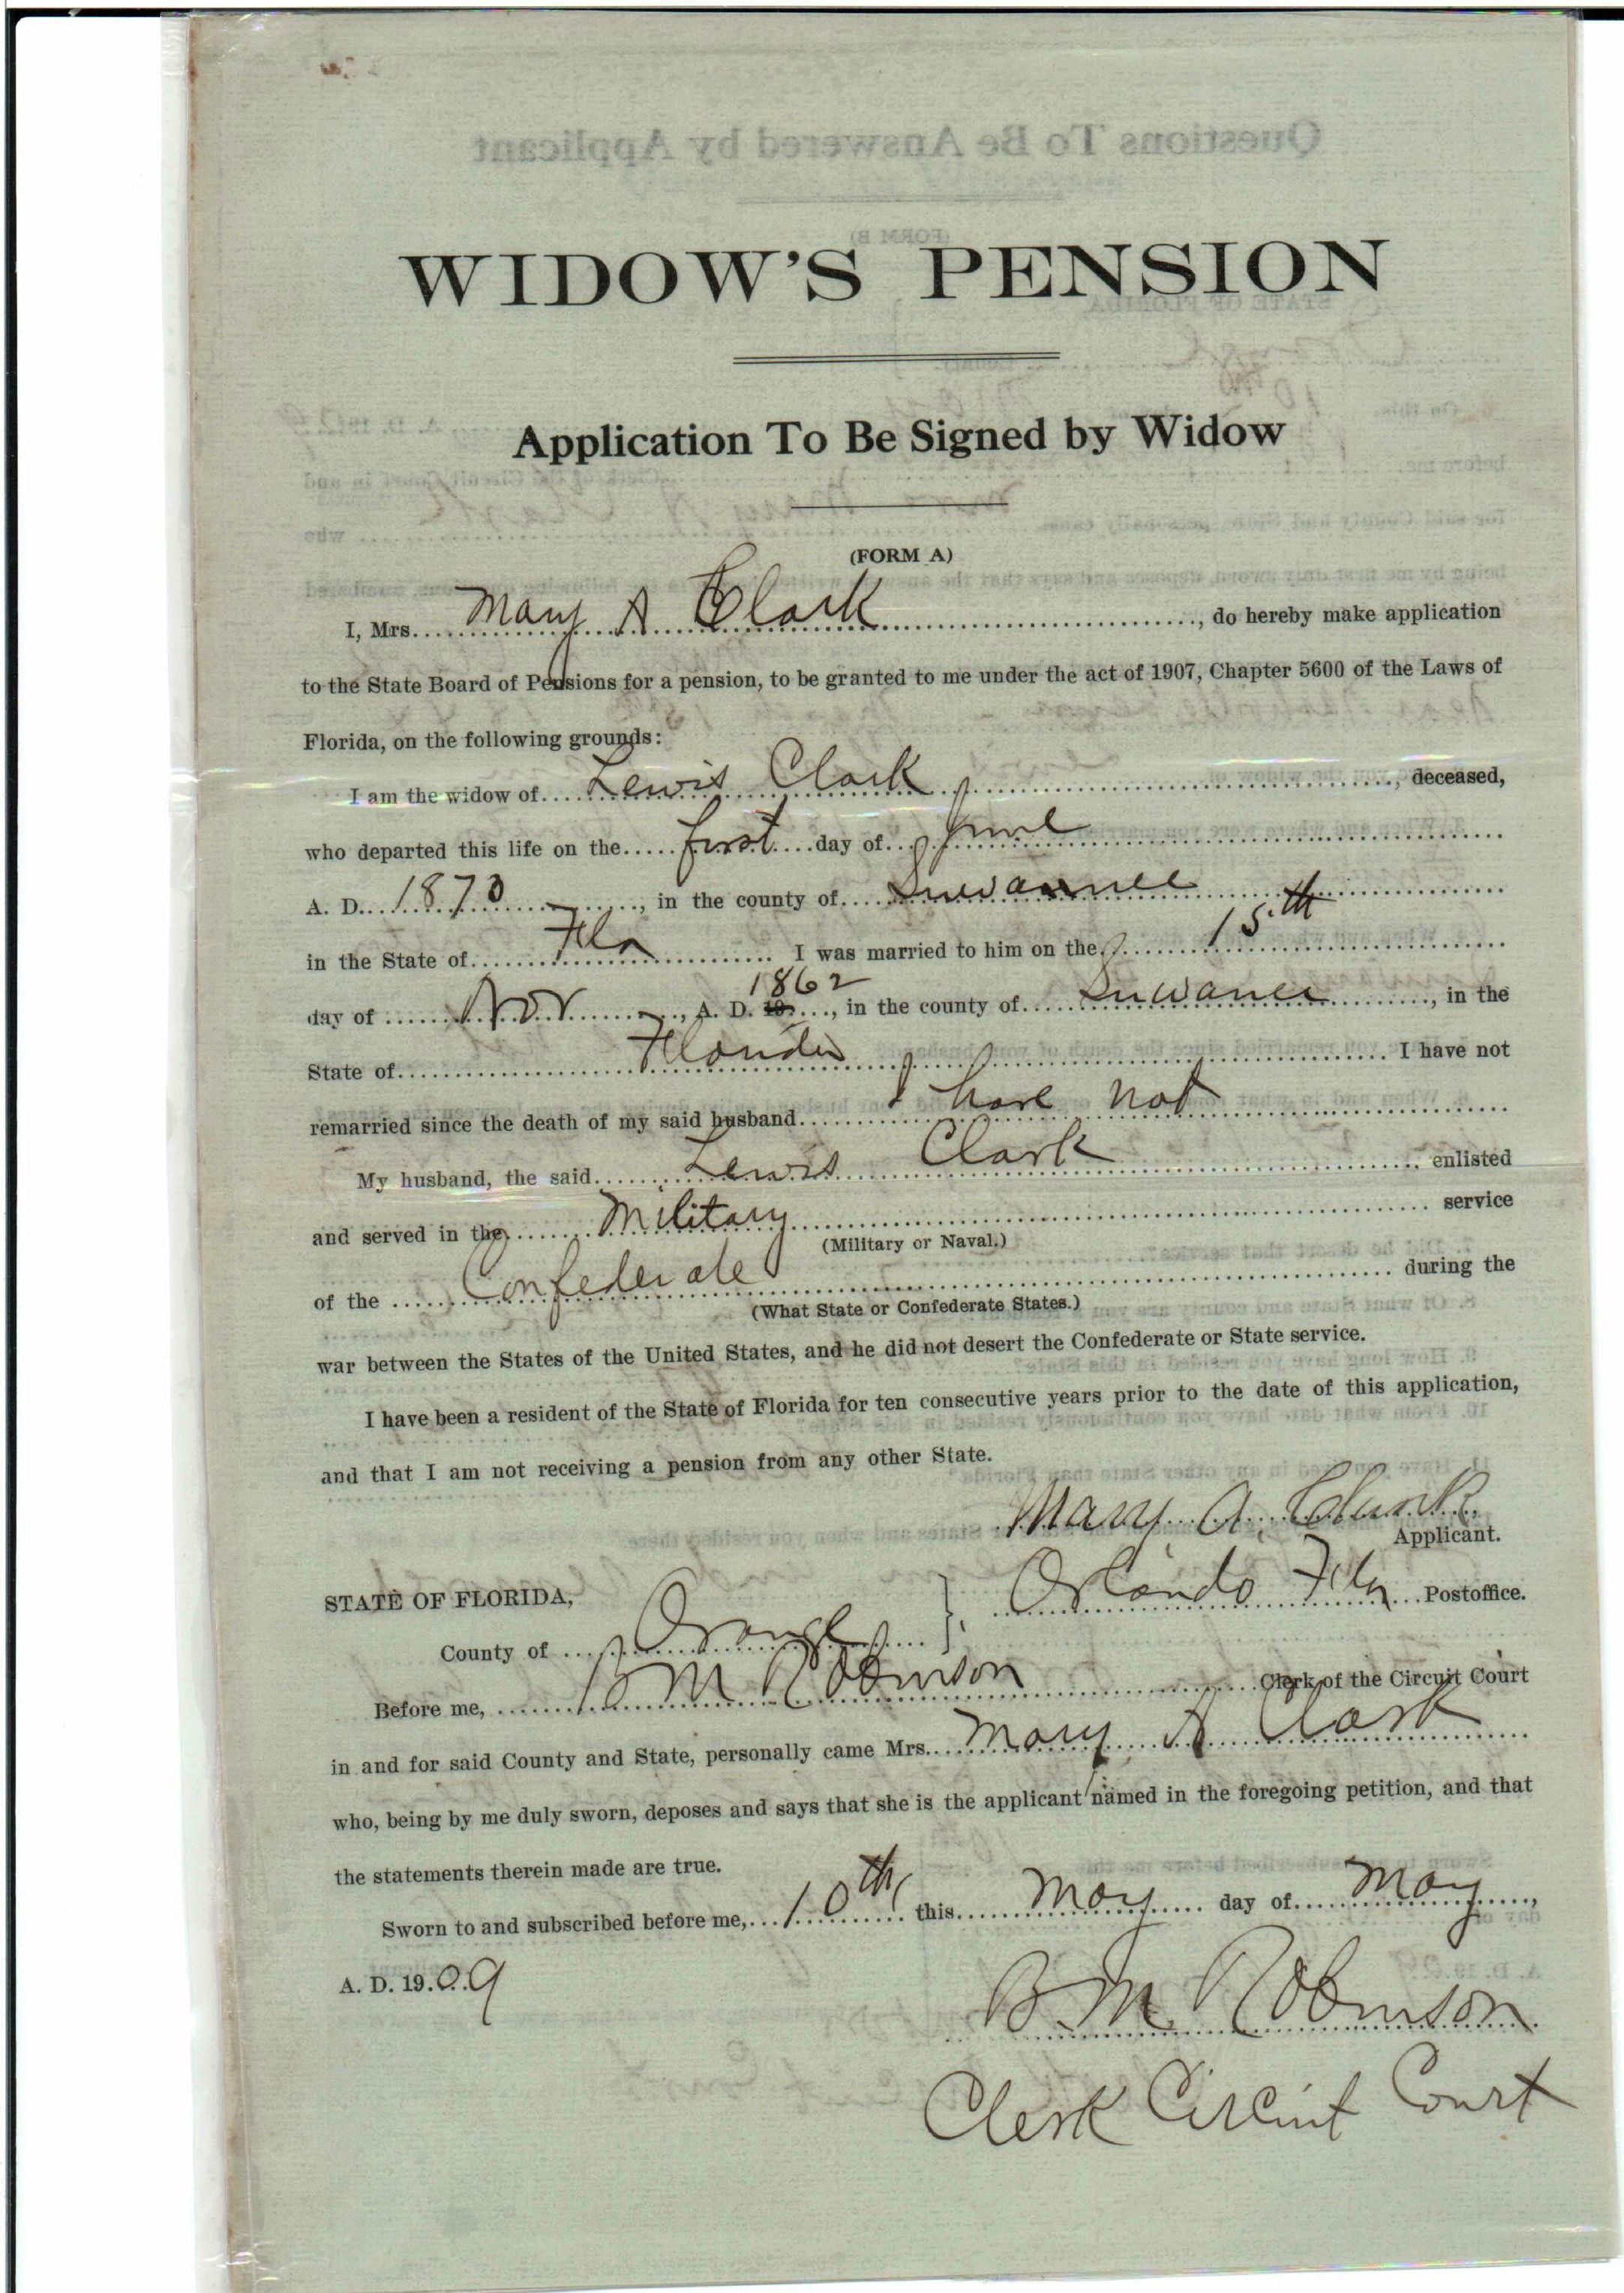 WIDOW'S PENSION
Application To Be Signed by Widow
(FORM A)
I, Mrs. Mary A Clark, do hereby make application
to the State Board of Pensions for a pension, to be granted to me under the act of 1907, Chapter 5600 of the Laws of
Florida, on the following grounds:
I am the widow of Lewis Clark, deceased,
who departed this life on the first day of June
A. D. 1873, in the county of Suwannee
in the State of Fla I was married to him on the 15th
day of Nov, A. D. 19 1862, in the county of Suwanee, in the
State of Florida I have not
remarried since the death of my said husband I have not
My husband, the said Lewis Clark enlisted
and served in the Military service
(Military or Naval.)
of the Confederate during the
(What State or Confederate States.)
war between the States of the United States, and he did not desert the Confederate or State service.
I have been a resident of the State of Florida for ten consecutive years prior to the date of this application,
and that I am not receiving a pension from any other State.
Mary A. Clark
Applicant.
STATE OF FLORIDA,
Orlando Fla Postoffice.
County of Orange
Before me, B M Robinson Clerk of the Circuit Court
in and for said County and State, personally came Mrs. Mary A Clark
who, being by me duly sworn, deposes and says that she is the applicant named in the foregoing petition, and that
the statements therein made are true.
Sworn to and subscribed before me, 10th this May day of May,
A. D. 1909
B. M. Robinson
Clerk Circuit Court